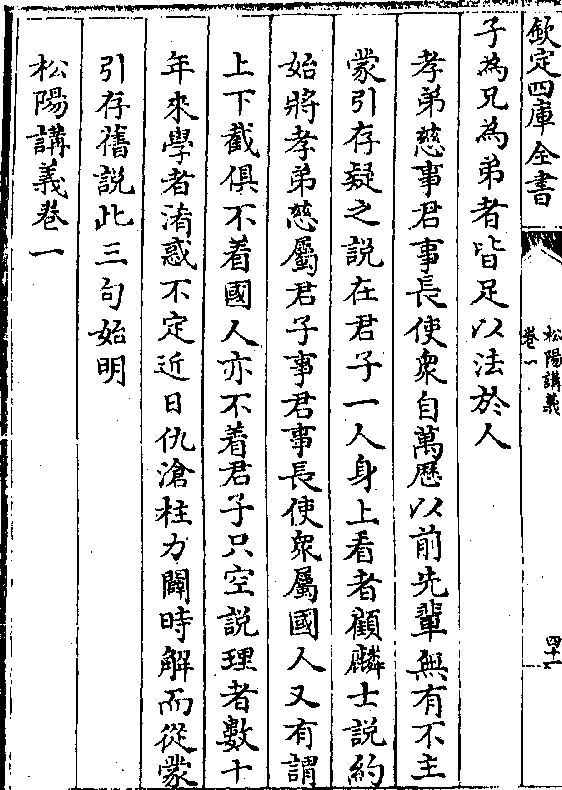 欽定四庫全書
松陽講義
卷一
四十一
子為兄為弟者皆足以法於人
孝弟慈事君事長使衆自萬厯以前先輩無有不主
蒙引存疑之說在君子一人身上看者顧麟士說約
始將孝弟慈屬君子事君事長使衆屬國人又有謂
上下截俱不着國人亦不着君子只空說理者數十
年來學者淆惑不定近日仇滄柱力闢時解而從蒙
引存舊說此三句始明
松陽講義卷一